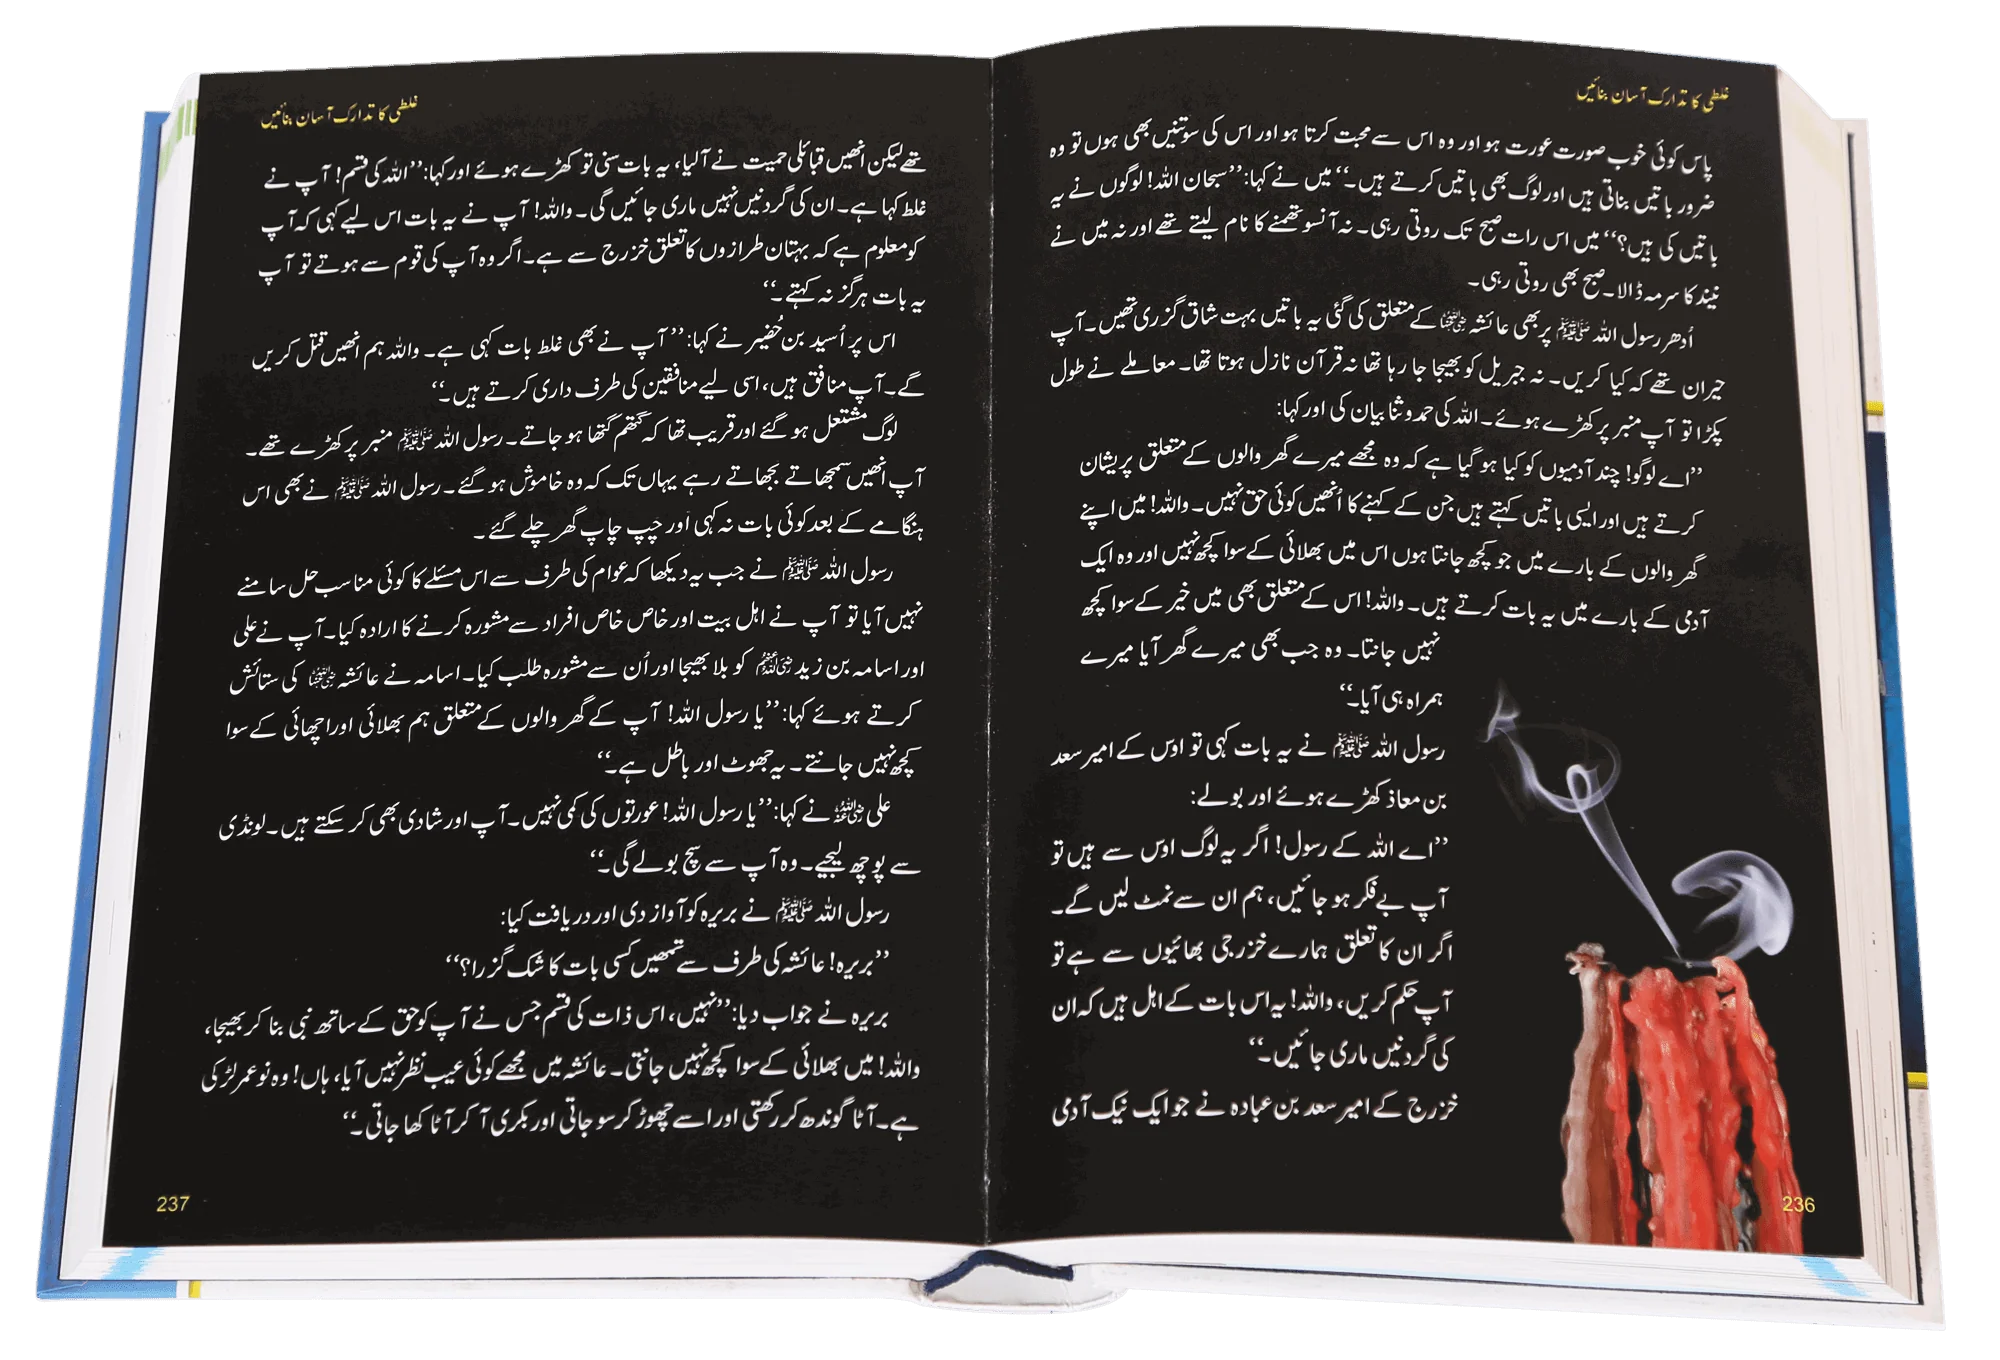 غلطی کا تدارک آسان بنائیں
پاس کوئی خوب صورت عورت ہو اور وہ اس سے محبت کرتا ہو اور اس کی سوتنیں بھی ہوں تو وہ
ضرور باتیں بناتی ہیں اور لوگ بھی باتیں کرتے ہیں۔‘‘ میں نے کہا: ’’سبحان اللہ! لوگوں نے یہ
باتیں کی ہیں؟‘‘ میں اس رات صبح تک روتی رہی۔ نہ آنسو تھمنے کا نام لیتے تھے اور نہ میں نے
نیند کا سرمہ ڈالا۔ صبح بھی روتی رہی۔
اُدھر رسول اللہ ﷺ پر بھی عائشہ رضی اللہ عنہا کے متعلق کی گئی یہ باتیں بہت شاق گزری تھیں۔ آپ
حیران تھے کہ کیا کریں۔ نہ جبریل کو بھیجا جا رہا تھا نہ قرآن نازل ہوتا تھا۔ معاملے نے طول
پکڑا تو آپ منبر پر کھڑے ہوئے۔ اللہ کی حمد و ثنا بیان کی اور کہا:
’’اے لوگو! چند آدمیوں کو کیا ہو گیا ہے کہ وہ مجھے میرے گھر والوں کے متعلق پریشان
کرتے ہیں اور ایسی باتیں کہتے ہیں جن کے کہنے کا اُنھیں کوئی حق نہیں۔ واللہ! میں اپنے
گھر والوں کے بارے میں جو کچھ جانتا ہوں اس میں بھلائی کے سوا کچھ نہیں اور وہ ایک
آدمی کے بارے میں یہ بات کرتے ہیں۔ واللہ! اس کے متعلق بھی میں خیر کے سوا کچھ
نہیں جانتا۔ وہ جب بھی میرے گھر آیا میرے
ہمراہ ہی آیا۔‘‘
رسول اللہ ﷺ نے یہ بات کہی تو اوس کے امیر سعد
بن معاذ کھڑے ہوئے اور بولے:
’’اے اللہ کے رسول! اگر یہ لوگ اوس سے ہیں تو
آپ بے فکر ہو جائیں، ہم ان سے نمٹ لیں گے۔
اگر ان کا تعلق ہمارے خزرجی بھائیوں سے ہے تو
آپ حکم کریں، واللہ! یہ اس بات کے اہل ہیں کہ ان
کی گردنیں ماری جائیں۔‘‘
خزرج کے امیر سعد بن عبادہ نے جو ایک نیک آدمی
236
غلطی کا تدارک آسان بنائیں
تھے لیکن انھیں قبائلی حمیت نے آلیا، یہ بات سنی تو کھڑے ہوئے اور کہا: ’’اللہ کی قسم! آپ نے
غلط کہا ہے۔ ان کی گردنیں نہیں ماری جائیں گی۔ واللہ! آپ نے یہ بات اس لیے کہی کہ آپ
کو معلوم ہے کہ بہتان طرازوں کا تعلق خزرج سے ہے۔ اگر وہ آپ کی قوم سے ہوتے تو آپ
یہ بات ہرگز نہ کہتے۔‘‘
اس پر اُسید بن حُضیر نے کہا: ’’آپ نے بھی غلط بات کہی ہے۔ واللہ ہم انھیں قتل کریں
گے۔ آپ منافق ہیں، اسی لیے منافقین کی طرف داری کرتے ہیں۔‘‘
لوگ مشتعل ہو گئے اور قریب تھا کہ گتھم گتھا ہو جاتے۔ رسول اللہ ﷺ منبر پر کھڑے تھے۔
آپ انھیں سمجھاتے بجھاتے رہے یہاں تک کہ وہ خاموش ہو گئے۔ رسول اللہ ﷺ نے بھی اس
ہنگامے کے بعد کوئی بات نہ کہی اور چپ چاپ گھر چلے گئے۔
رسول اللہ ﷺ نے جب یہ دیکھا کہ عوام کی طرف سے اس مسئلے کا کوئی مناسب حل سامنے
نہیں آیا تو آپ نے اہل بیت اور خاص خاص افراد سے مشورہ کرنے کا ارادہ کیا۔ آپ نے علی
اور اسامہ بن زید رضی اللہ عنہم کو بلا بھیجا اور اُن سے مشورہ طلب کیا۔ اسامہ نے عائشہ رضی اللہ عنہا کی ستائش
کرتے ہوئے کہا: ’’یا رسول اللہ! آپ کے گھر والوں کے متعلق ہم بھلائی اور اچھائی کے سوا
کچھ نہیں جانتے۔ یہ جھوٹ اور باطل ہے۔‘‘
علی رضی اللہ عنہ نے کہا: ’’یا رسول اللہ! عورتوں کی کمی نہیں۔ آپ اور شادی بھی کر سکتے ہیں۔ لونڈی
سے پوچھ لیجیے۔ وہ آپ سے سچ بولے گی۔‘‘
رسول اللہ ﷺ نے بریرہ کو آواز دی اور دریافت کیا:
’’بریرہ! عائشہ کی طرف سے تمھیں کسی بات کا شک گزرا؟‘‘
بریرہ نے جواب دیا: ’’نہیں، اس ذات کی قسم جس نے آپ کو حق کے ساتھ نبی بنا کر بھیجا،
واللہ! میں بھلائی کے سوا کچھ نہیں جانتی۔ عائشہ میں مجھے کوئی عیب نظر نہیں آیا، ہاں! وہ نو عمر لڑکی
ہے۔ آٹا گوندھ کر رکھتی اور اسے چھوڑ کر سو جاتی اور بکری آ کر آٹا کھا جاتی۔‘‘
237